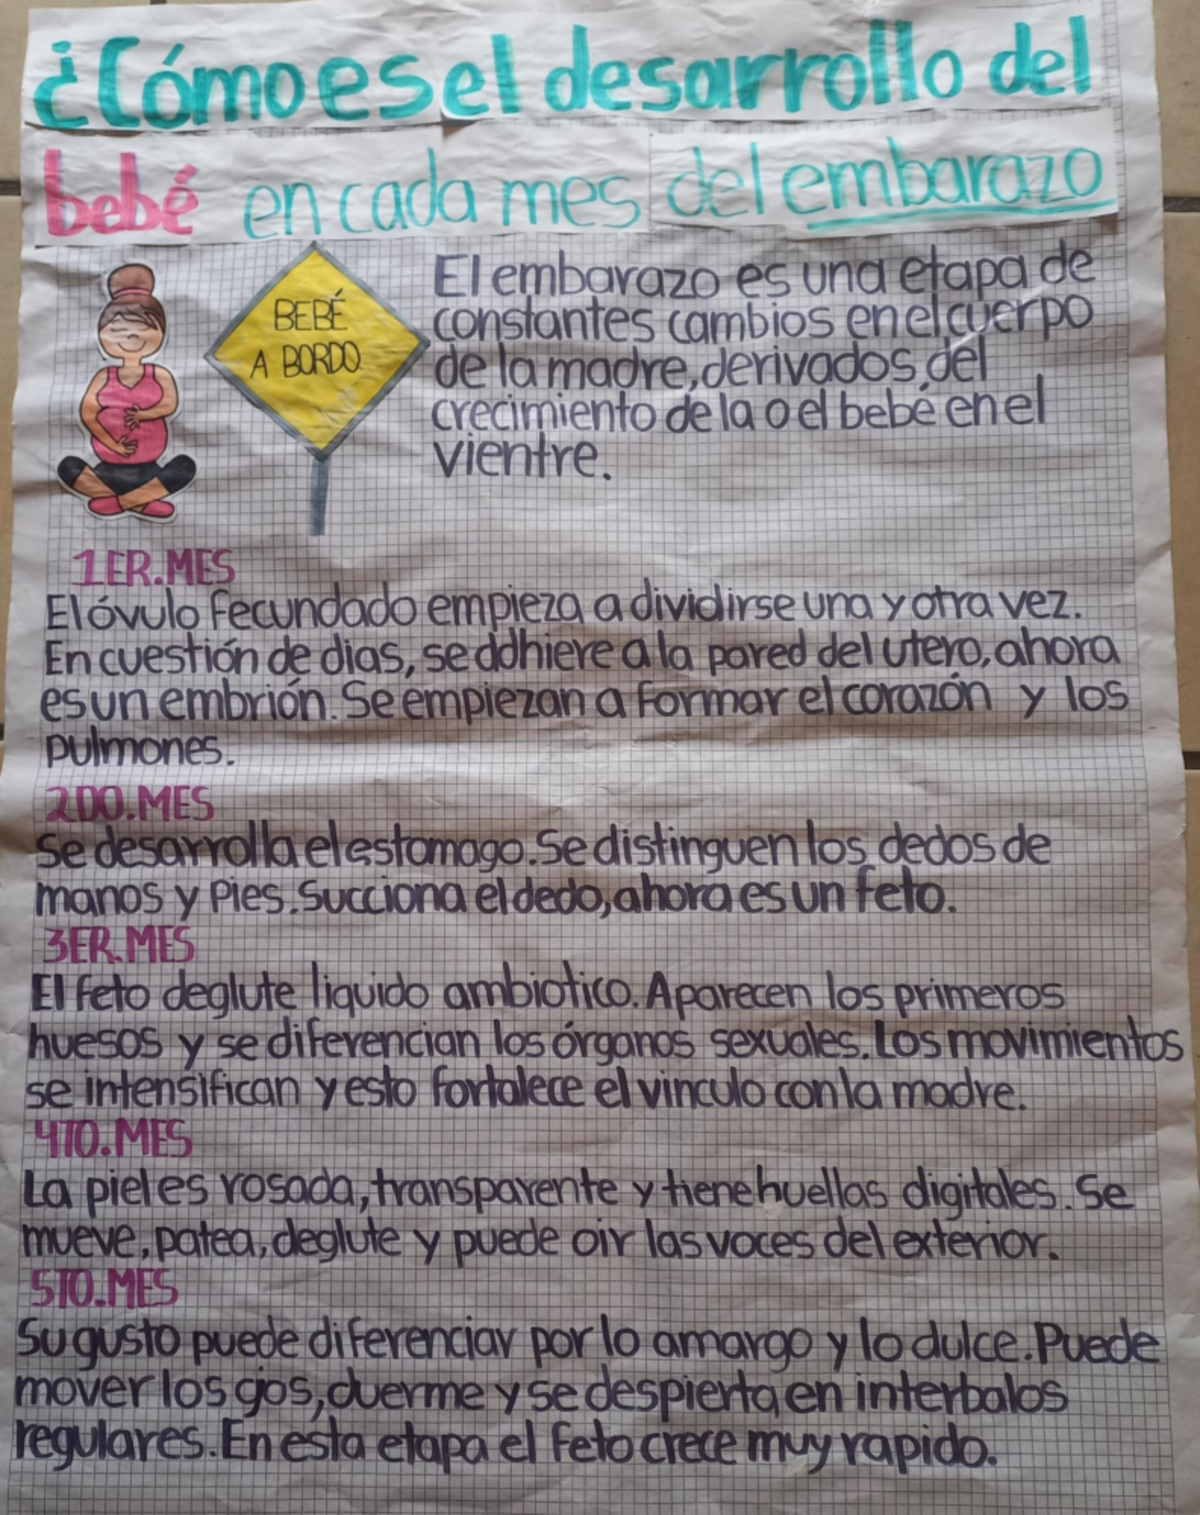 ¿Cómo es el desarrollo del
bebé en cada mes del embarazo
BEBÉ
A BORDO
El embarazo es una etapa de
constantes cambios en el cuerpo
de la madre, derivados del
crecimiento de la o el bebé en el
vientre.
1ER.MES
El óvulo fecundado empieza a dividirse una y otra vez.
En cuestión de dias, se ddhiere a la pared del utero, ahora
es un embrión. Se empiezan a formar el corazón y los
pulmones.
2DO.MES
Se desarrolla el estomago. Se distinguen los dedos de
manos y pies. Succiona el dedo, ahora es un feto.
3ER.MES
El feto deglute liquido ambiotico. Aparecen los primeros
huesos y se diferencian los órganos sexuales. Los movimientos
se intensifican y esto fortalece el vinculo con la madre.
4TO.MES
La piel es rosada, transparente y tiene huellas digitales. Se
mueve, patea, deglute y puede oir las voces del exterior.
5TO.MES
Su gusto puede diferenciar por lo amargo y lo dulce. Puede
mover los ojos, duerme y se despierta en interbalos
regulares. En esta etapa el feto crece muy rapido.